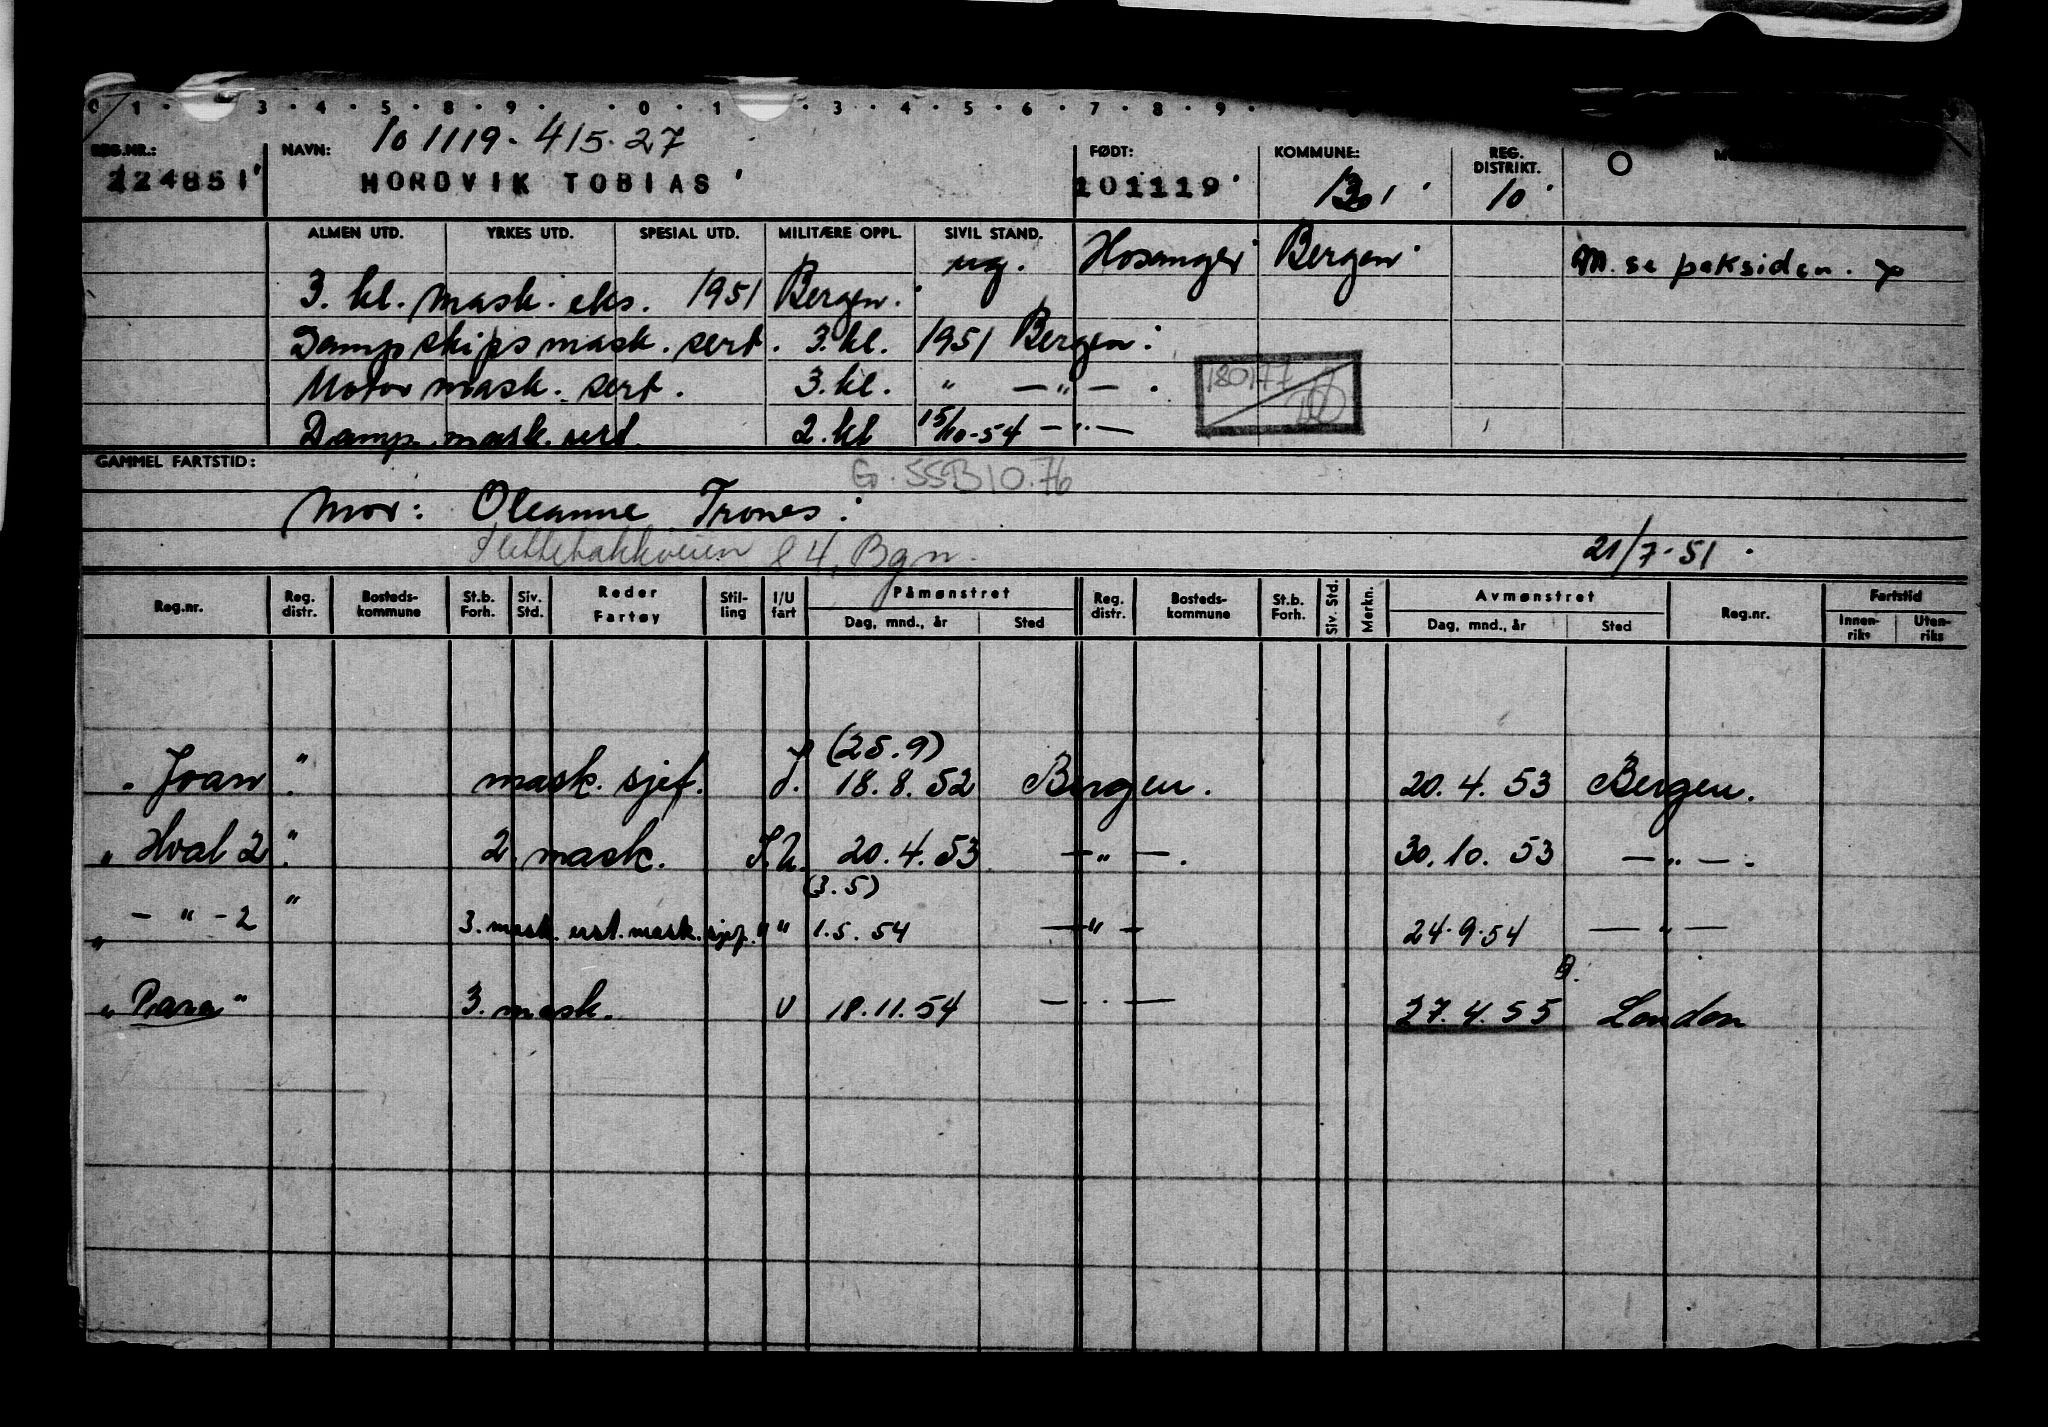 10 1119 - 415.27
REG.NR.: NAVN: FØDT: KOMMUNE: REG. DISTRIKT.
224851 HORDVIK TOBIAS 101119 1301 10
ALMEN UTD. YRKES UTD. SPESIAL UTD. MILITÆRE OPPL. SIVIL STAND.
ug. Hosanger Bergen M. se baksiden.
3. kl. mask. eks. 1951 Bergen.
Dampskipsmask. sert. 3. kl. 1951 Bergen.
Motormask. sert. 3. kl. " — " —
180177
Damp. mask. sert. 2. kl 15/10-54 — " —
GAMMEL FARTSTID:
G. 55B10.76
Mor: Oleanne Trones.
Slettebakkveien 84, Bgn. 21/7-51
Reg.nr. Reg. distr. Bosteds-kommune St.b. Forh. Siv. Std. Reder Fartøy Stil-ling I/U fart Påmønstret Dag, mnd., år Sted Reg. distr. Bosteds-kommune St.b. Forh. Siv. Std. Merkn. Avmønstret Dag, mnd., år Sted Reg.nr. Fartstid Innen-riks Uten-riks
(25.9)
"Joan" mask. sjef. I. 18.8.52 Bergen. 20.4.53 Bergen.
"Hval 2" 2. mask. I.U. 20.4.53 — " — 30.10.53 — " —
(3.5)
" — " — 2" 3. mask. sjef. " " 1.5.54 — " — 24.9.54 — " —
"Para" 3. mask. U 18.11.54 — " — 27.4.55 London